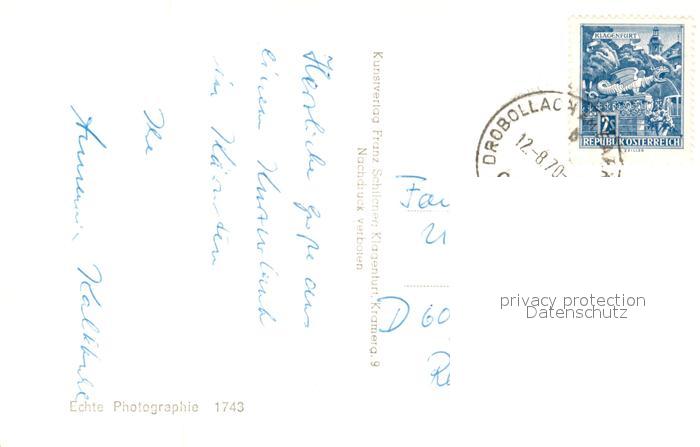 Herzliche Grüße aus
einem Kurzurlaub
in Kärnten
Ihr
Kunstverlag Franz Schilcher, Klagenfurt, Kramerg. 9
Nachdruck verboten
Echte Photographie 1743
KLAGENFURT
2S
REPUBLIK ÖSTERREICH
DROBOLLACH
12.-8.70-
Fa
D 60
privacy protection
Datenschutz